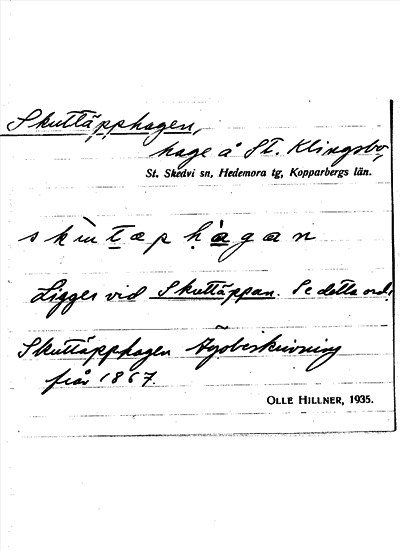 Skuttäpphagen,
hage å St. Klingsbo,
St. Skedvi sn, Hedemora tg, Kopparbergs län.
Ligger vid Skuttäppan. Se detta ord!
Skuttäpphagen Ägobeskrivning
från 1867.
OLLE HILLNER, 1935.